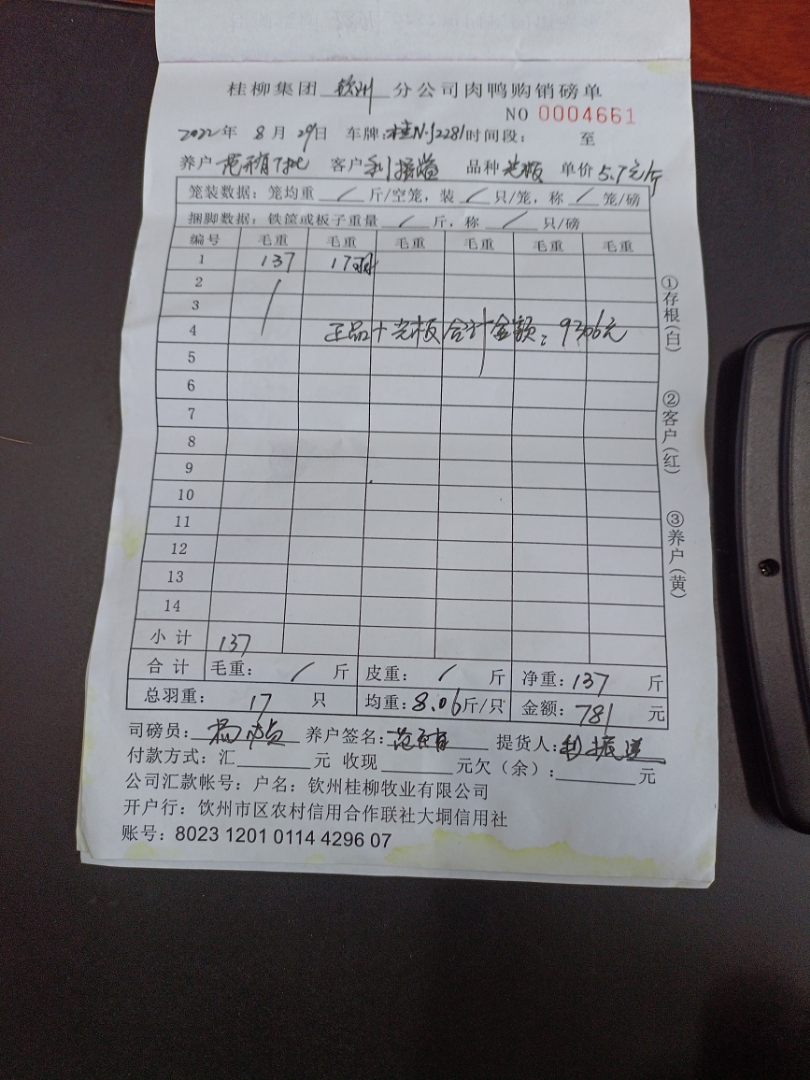 桂柳集团 钦州 分公司肉鸭购销磅单
NO 0004661
2022年 8月 29日 车牌:桂N·J2281 时间段: 至
养户 客户 品种 光板 单价 5.7元/斤
笼装数据:笼均重 / 斤/空笼,装 / 只/笼,称 / 笼/磅
捆脚数据:铁筐或板子重量 / 斤,称 / 只/磅
编号 毛重 毛重 毛重 毛重 毛重 毛重
1 137 17羽
2
3
4 正品+光板合计金额:9306元
5
6
7
8
9
10
11
12
13
14
小计 137
合计 毛重: / 斤 皮重: / 斤 净重:137 斤
总羽重: 17 只 均重:8.06斤/只 金额:781 元
司磅员: 养户签名: 提货人:
付款方式:汇 元 收现 元欠(余): 元
公司汇款帐号:户名:钦州桂柳牧业有限公司
开户行:钦州市区农村信用合作联社大垌信用社
账号:8023 1201 0114 4296 07
①存根(白)
②客户(红)
③养户(黄)